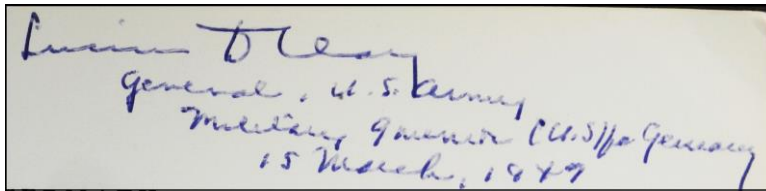 Lucius D Clay
General, U.S. Army
Military Governor (U.S) for Germany
15 March, 1949